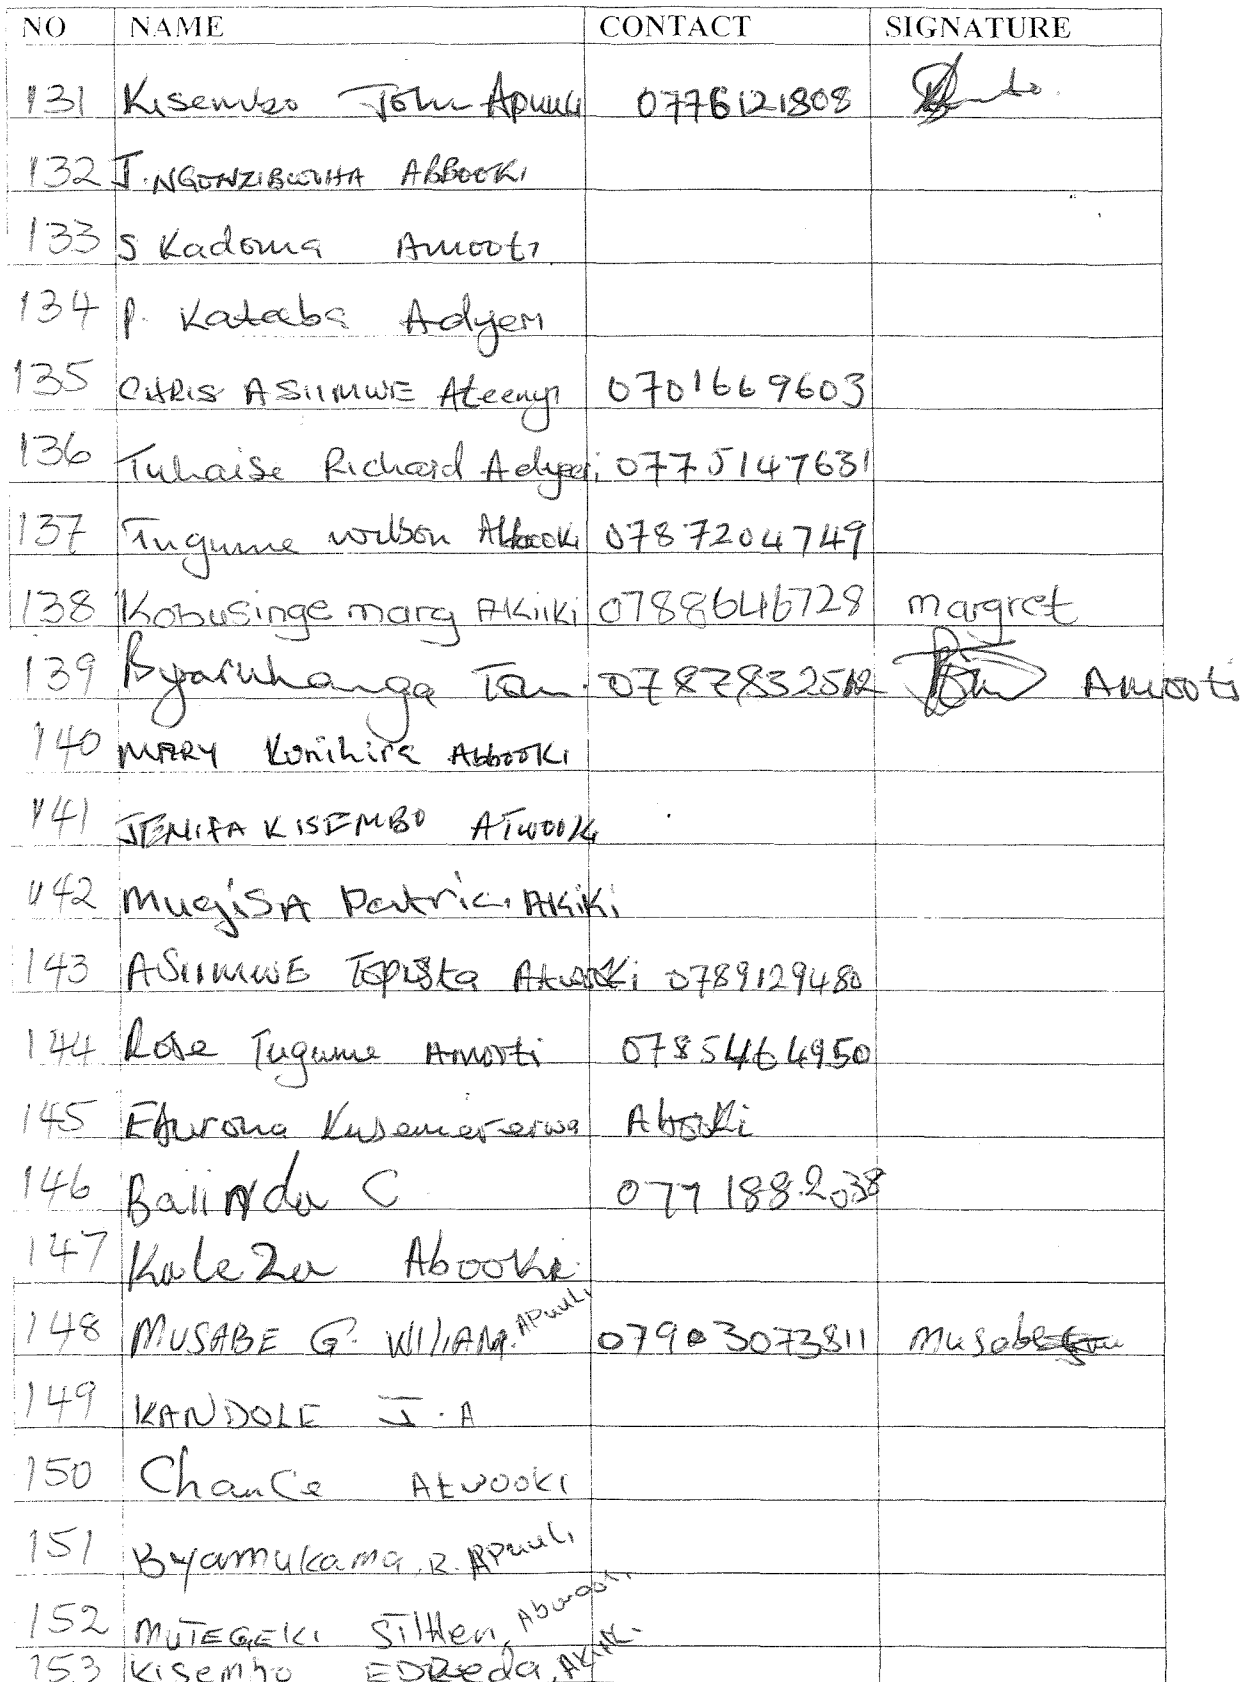 NO NAME CONTACT SIGNATURE
131 Kisembo John Apuuli 0776121808
132 J. NGONZIBWOHA ABBOOKI
133 S Kadoma Amooti
134 P. Kataba Adyeri
135 CHRIS ASIIMWE Ateenyi 0701669603
136 Tuhaise Richard Adyeeri 0775147631
137 Tugume wilson Abbooki 0787204749
138 Kobusinge marg AKiiki 0788646728 margret
139 Byaruhanga Tom. Amooti
140 MARY Kunihira Abbooki
141 JENIFA KISEMBO ATWOOKI
142 MugiSA Patric AKiKi
143 ASIIMWE Topista Atwooki 0789129480
144 Rose Tugume Amooti 0785464950
145 Kusemererwa Abooki
146 Balinda C 0771882038
147 KaleZa Abooki
148 MUSABE G. WIlIAM. APuuLi 07903073811 Musabe
149 KANDOLE J. A
150 ChanCe Atwooki
151 Byamukama .R. APuuLi
152 MUTEGEKI
153 Kisembo EDReda, AKiiki